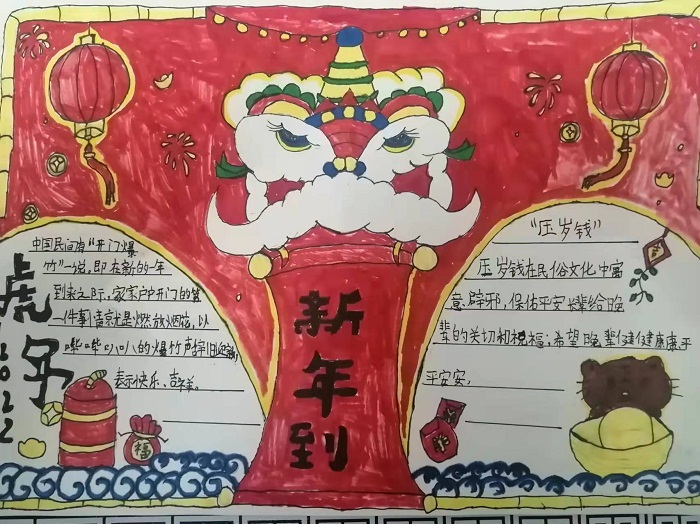 虎年
2022
中国民间有“开门爆
竹”一说,即在新的一年
到来之际,家家户户开门的第
一件事情就是燃放烟花,以
哔哔叭叭的爆竹声辞旧迎新,
表示快乐、吉祥。
福
新年到
“压岁钱”
压岁钱在民俗文化中寓
意辟邪,保佑平安,长辈给晚
辈的关切和祝福;希望晚辈健健康康平
平安安,